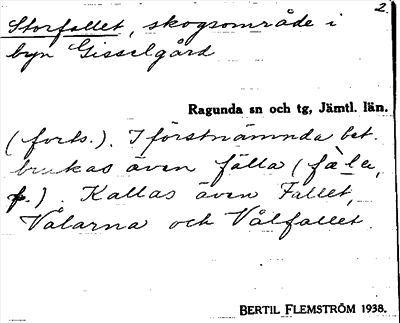 2.
Storfallet, skogsområde i
byn Gisselgård
Ragunda sn och tg, Jämtl. län.
(forts.). I förstnämnda bet.
brukas även fälla (fæ̀la,
f.). Kallas även Fallet,
Vålarna och Vålfallet.
BERTIL FLEMSTRÖM 1938.